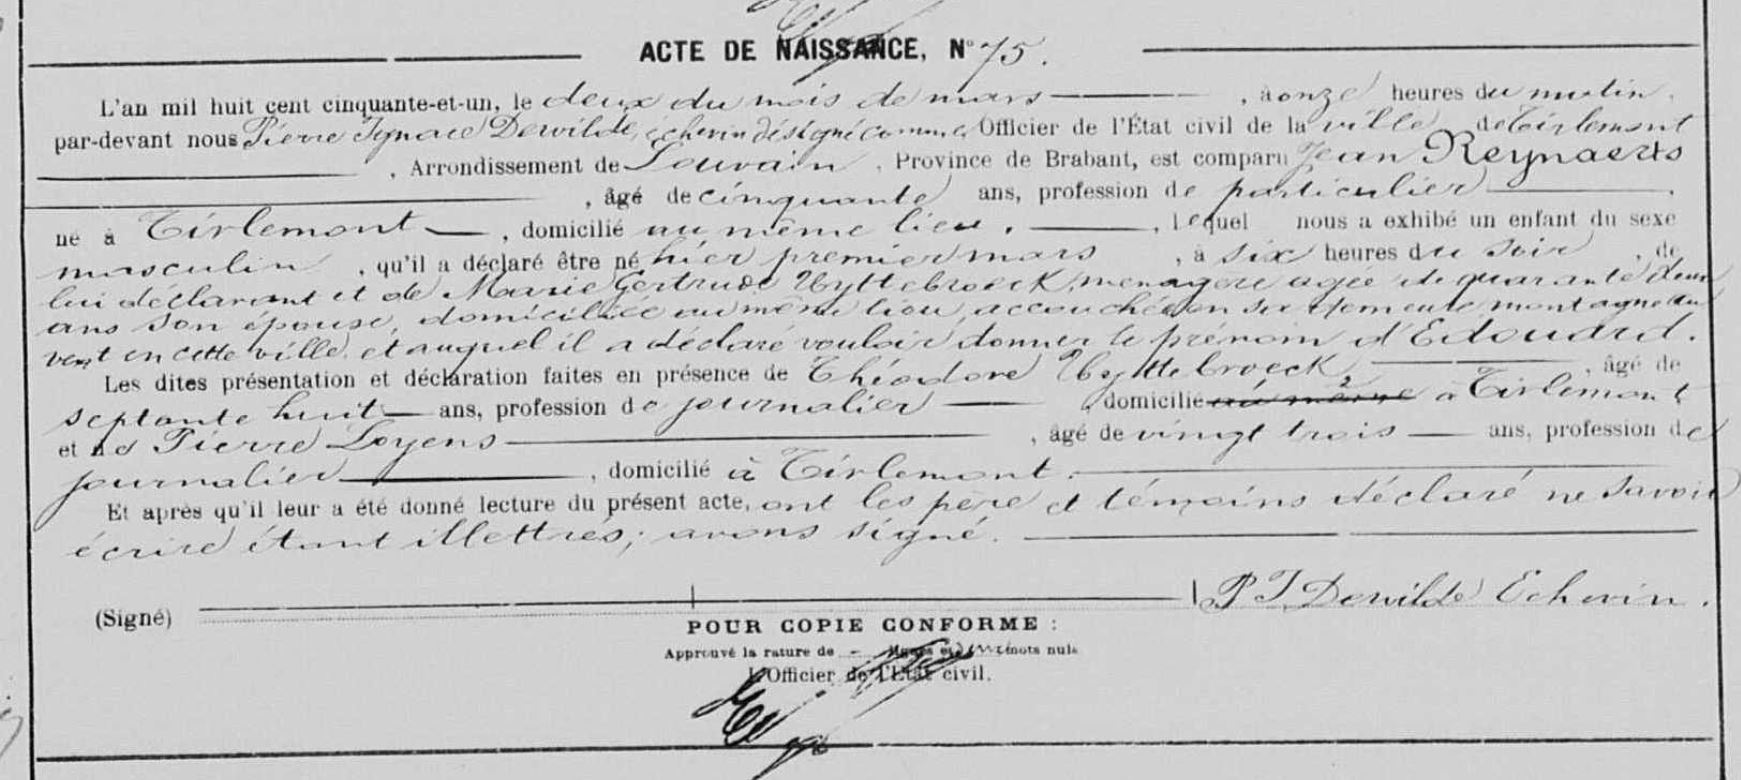 ACTE DE NAISSANCE, N° 75.
L'an mil huit cent cinquante-et-un, le deux du mois de mars, à onze heures du matin,
par-devant nous Pierre Ignace Dewilde, échevin désigné comme Officier de l'État civil de la ville de Tirlemont
, Arrondissement de Louvain, Province de Brabant, est comparu Jean Reynaerts
, âgé de cinquante ans, profession de particulier,
né à Tirlemont, domicilié au même lieu, lequel nous a exhibé un enfant du sexe
masculin, qu'il a déclaré être né hier premier mars, à six heures du soir, de
lui déclarant et de Marie Gertrude Uyttebroeck, menagere agée de quarante deux
ans son épouse, domiciliée au même lieu, accouchée en sa demeure montagne du
vent en cette ville, et auquel il a déclaré vouloir donner le prénom d'Edouard.
Les dites présentation et déclaration faites en présence de Théodore Uyttebroeck, âgé de
septante huit ans, profession de journalier, domicilié au même à Tirlemont
et de Pierre Loyens, âgé de vingt trois ans, profession de
journalier, domicilié à Tirlemont.
Et après qu'il leur a été donné lecture du présent acte, ont les père et témoins déclaré ne savoir
écrire étant illettrés; avons signé.
(Signé) P I Dewilde Echevin.
POUR COPIE CONFORME :
Approuvé la rature de mots nuls
L'Officier de l'État civil.